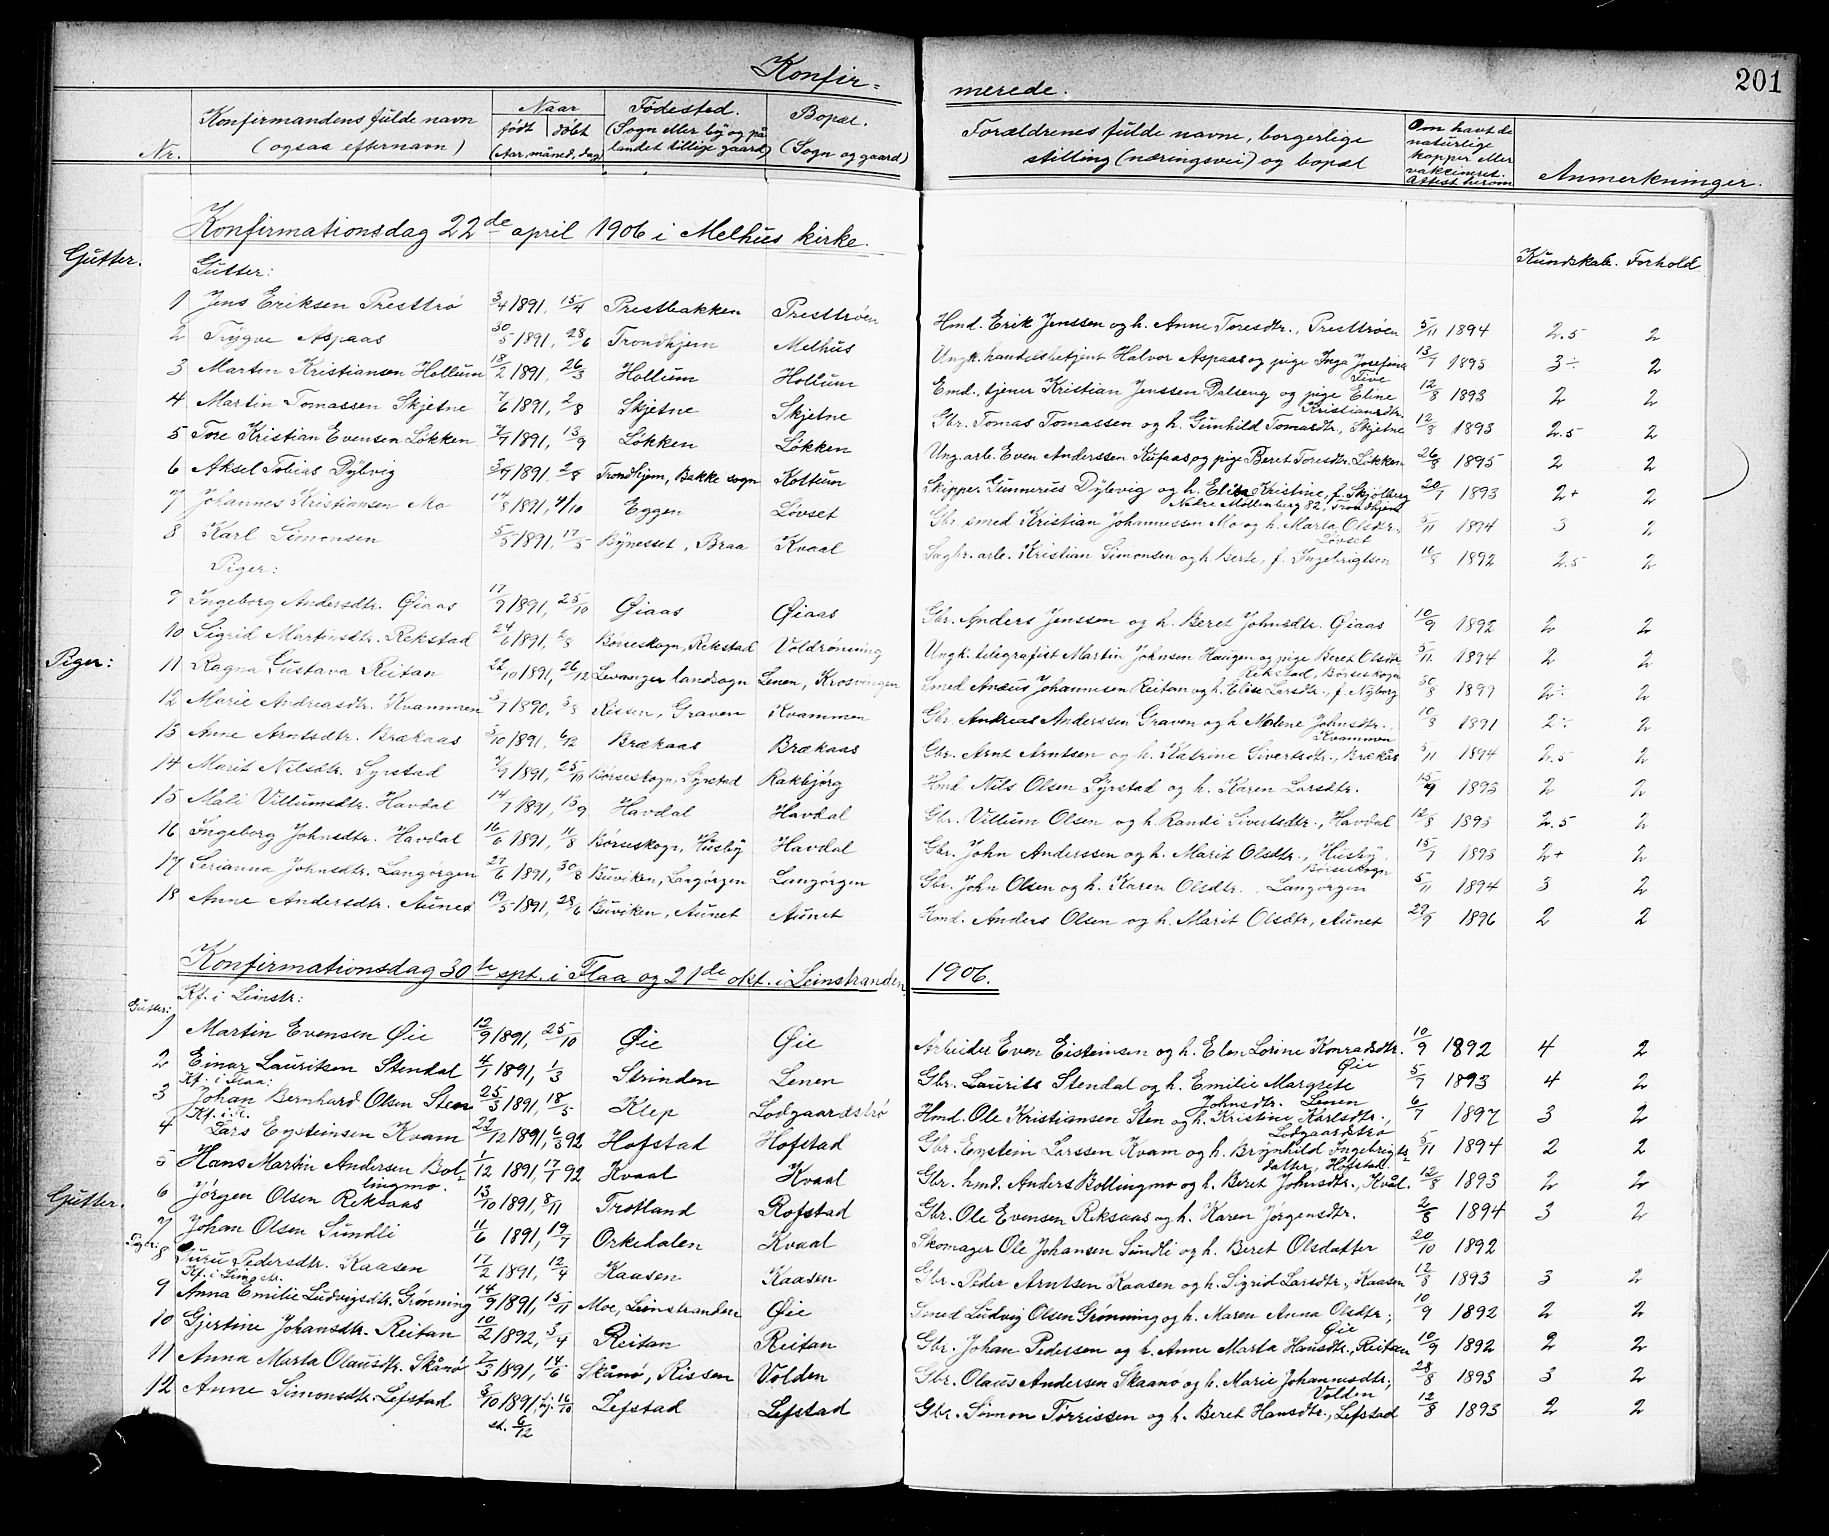 Konfirmerede. 201
Nr. Konfirmandens fulde navn (ogsaa efternavn) Naar født døbt (Aar, måned, dag) Fødested. (Sogn eller by og på landet tillige gaard) Bopæl. (Sogn og gaard) Forældrenes fulde navne, borgerlige stilling (næringsvei) og bopæl Om havt de naturlige kopper eller vakcineret. Attest herom Anmerkninger.
Konfirmationsdag 22de april 1906 i Melhus kirke.
Gutter. Gutter: Kundskab. Forhold
1 Jens Eriksen Presttrø 3/4 1891, 15/4 Prestbakken Presttrøen Hmd. Erik Jenssen og h. Anne Toresdtr., Presttrøen 5/11 1894 2.5 2
2 Trygve Aspaas 30/5 1891, 28/6 Trondhjem Melhus Ungk. handelsbetjent Halvor Aspaas og pige Inga Josefina Tive 13/7 1893 3÷ 2
3 Martin Kristiansen Hollum 18/2 1891, 26/3 Hollum Hollum Emd., tjener Kristian Jenssen Dalseng og pige Eline Kristiansdtr. 12/8 1893 2 2
4 Martin Tomassen Skjetne 7/6 1891, 2/8 Skjetne Skjetne Gbr. Tomas Tomassen og h. Gunhild Tomasdtr., Skjetne 12/8 1893 2.5 2
5 Tore Kristian Evensen Løkken 7/7 1891, 13/9 Løkken Løkken Ung. arb. Even Anderssen Kufaas og pige Beret Toresdtr. Løkken 26/8 1895 2 2
6 Aksel Tobias Dybvig 1891, 2/8 Trondhjem, Bakke sogn Kottum Skipper Gunnerus Dybvig og h. Elisa Kristine, f. Skjølberg Nedre Møllenberg 82, Trondhjem 20/7 1893 2+ 2
7 Johannes Kristiansen Mo 14/8 1891, 4/10 Eggen Løvset Gbr. smed Kristian Johannessen Mo og h. Marta Olsdtr., Løvset 5/11 1894 3 2
8 Karl Simonsen 5/5 1891, 17/5 Bynesset, Braa Kvaal Sagbr. arb. Kristian Simonsen og h. Berte, f. Ingebrigtsen 16/8 1892 2.5 2
Piger:
9 Ingeborg Andersdtr. Øiaas 17/9 1891, 25/10 Øiaas Øiaas Gbr. Anders Jenssen og h. Beret Johnsdtr. Øiaas 10/9 1892 2 2
10 Sigrid Martinsdtr. Rekstad 24/6 1891, 2/8 Børseskogn, Rekstad Voldrønning Ungk. telegrafist Martin Johnsen Haugen og pige Beret Olsdtr. Rekstad, Børseskogn 5/11 1894 2 2
Piger: 11 Ragna Gustava Reitan 22/10 1891, 26/12 Levanger landsogn Lenen, Krosvingen Smed Anæus Johannesen Reitan og h. Elise Larsdtr., f. Nyborg 30/8 1897 2÷ 2
12 Marie Andreasdtr. Kvammen 3/7 1890, 3/8 Rissen, Graven Kvammen Gbr. Andreas Anderssen Graven og h. Malene Johnsdtr. Kvammen 10/8 1891 2÷ 2
13 Anne Arntsdtr. Brækaas 3/10 1891, 6/12 Brækaas Brækaas Gbr. Arnt Arntsen og h. Katrine Sivertsdtr., Brækaas 5/11 1894 2.5 2
14 Marit Nilsdtr. Syrstad 7/9 1891, 25/10 Børseskogn, Syrstad Rakbjørg Hmd. Nils Olsen Syrstad og h. Karen Larsdtr. 15/9 1893 2 2
15 Mali Villumsdtr. Havdal 14/7 1891, 13/9 Havdal Havdal Gbr. Villum Olsen og h. Randi Sivertsdtr., Havdal 12/8 1893 2.5 2
16 Ingeborg Johnsdtr. Havdal 16/6 1891, 11/8 Børseskogn, Husby Havdal Gbr. John Anderssen og h. Marit Olsdtr., Husby, Børseskogn 15/7 1893 2+ 2
17 Serianna Johnsdtr. Langørgen 27/6 1891, 30/8 Buviken, Langørgen Langørgen Gbr. John Olsen og h. Karen Olsdtr., Langørgen 5/11 1894 3 2
18 Anne Andersdtr. Aunet 19/5 1891, 28/6 Buviken, Aunet Aunet Hmd. Anders Olsen og h. Marit Olsdtr, Aunet 29/9 1896 2 2
Konfirmationsdag 30te spt. i Flaa og 21de okt. i Leinstranden 1906.
Gutter: Kf. i Leinstr:
1 Martin Evensen Øie 12/9 1891, 25/10 Øie Øie Arbeider Even Eisteinsen og h. Elen Lorine Konradsdtr. Øie 10/9 1892 4 2
2 Einar Lauritsen Stendal 4/1 1891, 1/3 Strinden Lenen Gbr. Laurits Stendal og h. Emilie Margrete Johnsdtr. Lenen 5/7 1893 4 2
Kf. i Flaa:
3 Johan Bernhard Olsen Sten 25/3 1891, 18/5 Klep Lodgaardstrø Hmd. Ole Kristiansen Sten og h. Kristine Karlsdtr., Lodgaardstrø 6/7 1897 3 2
4 Lars Eysteinsen Kvam 1891, 6/3 92 Hofstad Hofstad Gbr. Eystein Larssen Kvam og h. Brynhild Ingebrigtsdatter, Hofstad. 5/11 1894 2 2
5 Hans Martin Andersen Bollingmo. 1/12 1891, 17/1 92 Kvaal Kvaal Gbr. hmd. Anders Bollingmo og h. Beret Johnsdtr., Kvål. 12/8 1893 2 2
Gutter. 6 Jørgen Olsen Reksaas 13/10 1891, 8/11 Trotland Rofstad Gbr. Ole Evensen Reksaas og h. Karen Jørgensdtr. 2/8 1894 3 2
7 Johan Olsen Sundli 11/6 1891, 19/7 Orkedalen Kvaal Skomager Ole Johansen Sundli og h. Beret Olsdatter 20/10 1892
Piger: 8 Guru Pedersdtr. Kaasen 17/2 1891, 12/4 Kaasen Kaasen Gbr. Peder Arntsen Kaasen og h. Sigrid Larsdtr., Kaasen 12/8 1893 3 2
Kf. i Leinstr.
9 Anna Emilie Ludvigsdtr. Grønning 14/9 1891, 15/11 Moe, Leinstranden Øie Smed Ludvig Olsen Grønning og h. Maren Anna Olsdtr; Øie 10/9 1892 2 2
10 Gjertine Johansdtr. Reitan 10/2 1892, 3/4 Reitan Reitan Gbr. Johan Pedersen og h. Anne Marta Hansdtr., Reitan 10/9 1892 2 2
11 Anna Marta Olausdtr. Skånø 7/3 1891, 14/6 Skånø, Rissen Volden Gbr. Olaus Andersen Skaanø og h. Marie Johannesdtr; Volden 28/8 1893 3 2
12 Anne Simonsdtr. Lefstad 3/10 1891, hj. 16/10 st. 6/12 Lefstad Lefstad Gbr. Simon Tørrissen og h. Beret Hansdtr., Lefstad 12/8 1893 2 2